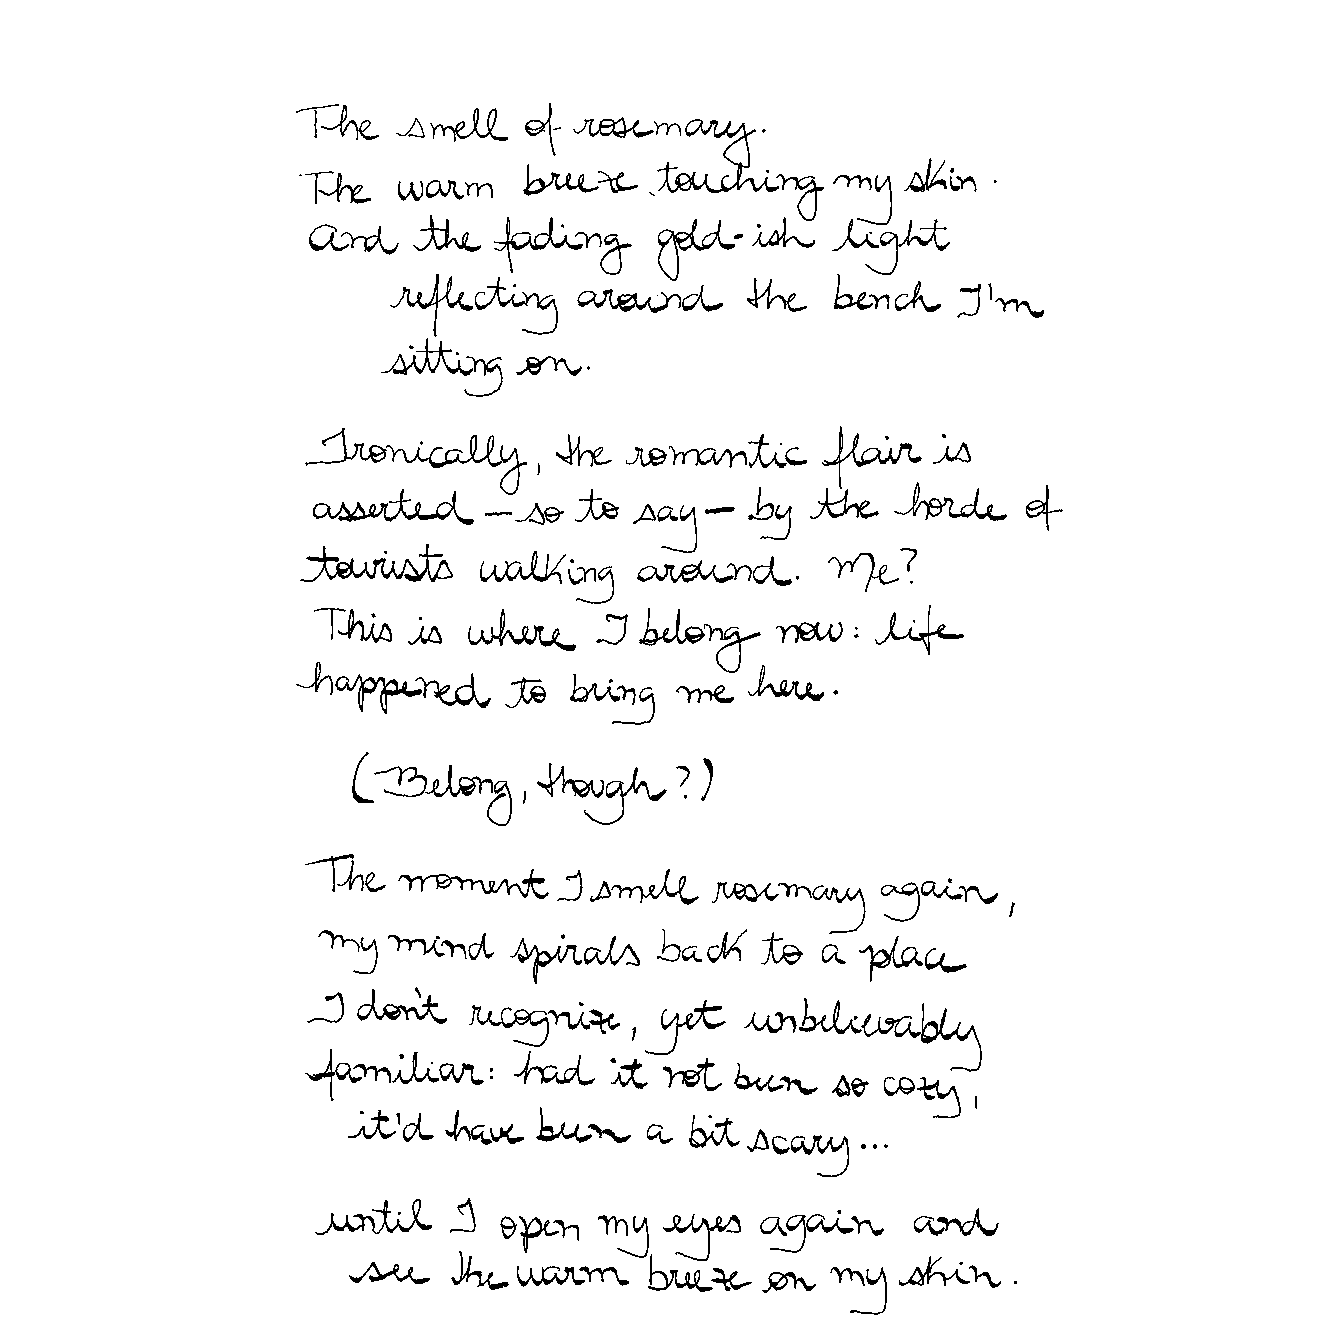 The smell of rosemary.
The warm breeze touching my skin.
And the fading gold-ish light
reflecting around the bench I'm
sitting on.
Ironically, the romantic flair is
asserted — so to say — by the horde of
tourists walking around. Me?
This is where I belong now: life
happened to bring me here.
(Belong, though?)
The moment I smell rosemary again,
my mind spirals back to a place
I don't recognize, yet unbelievably
familiar: had it not been so cozy,
it'd have been a bit scary...
until I open my eyes again and
see the warm breeze on my skin.